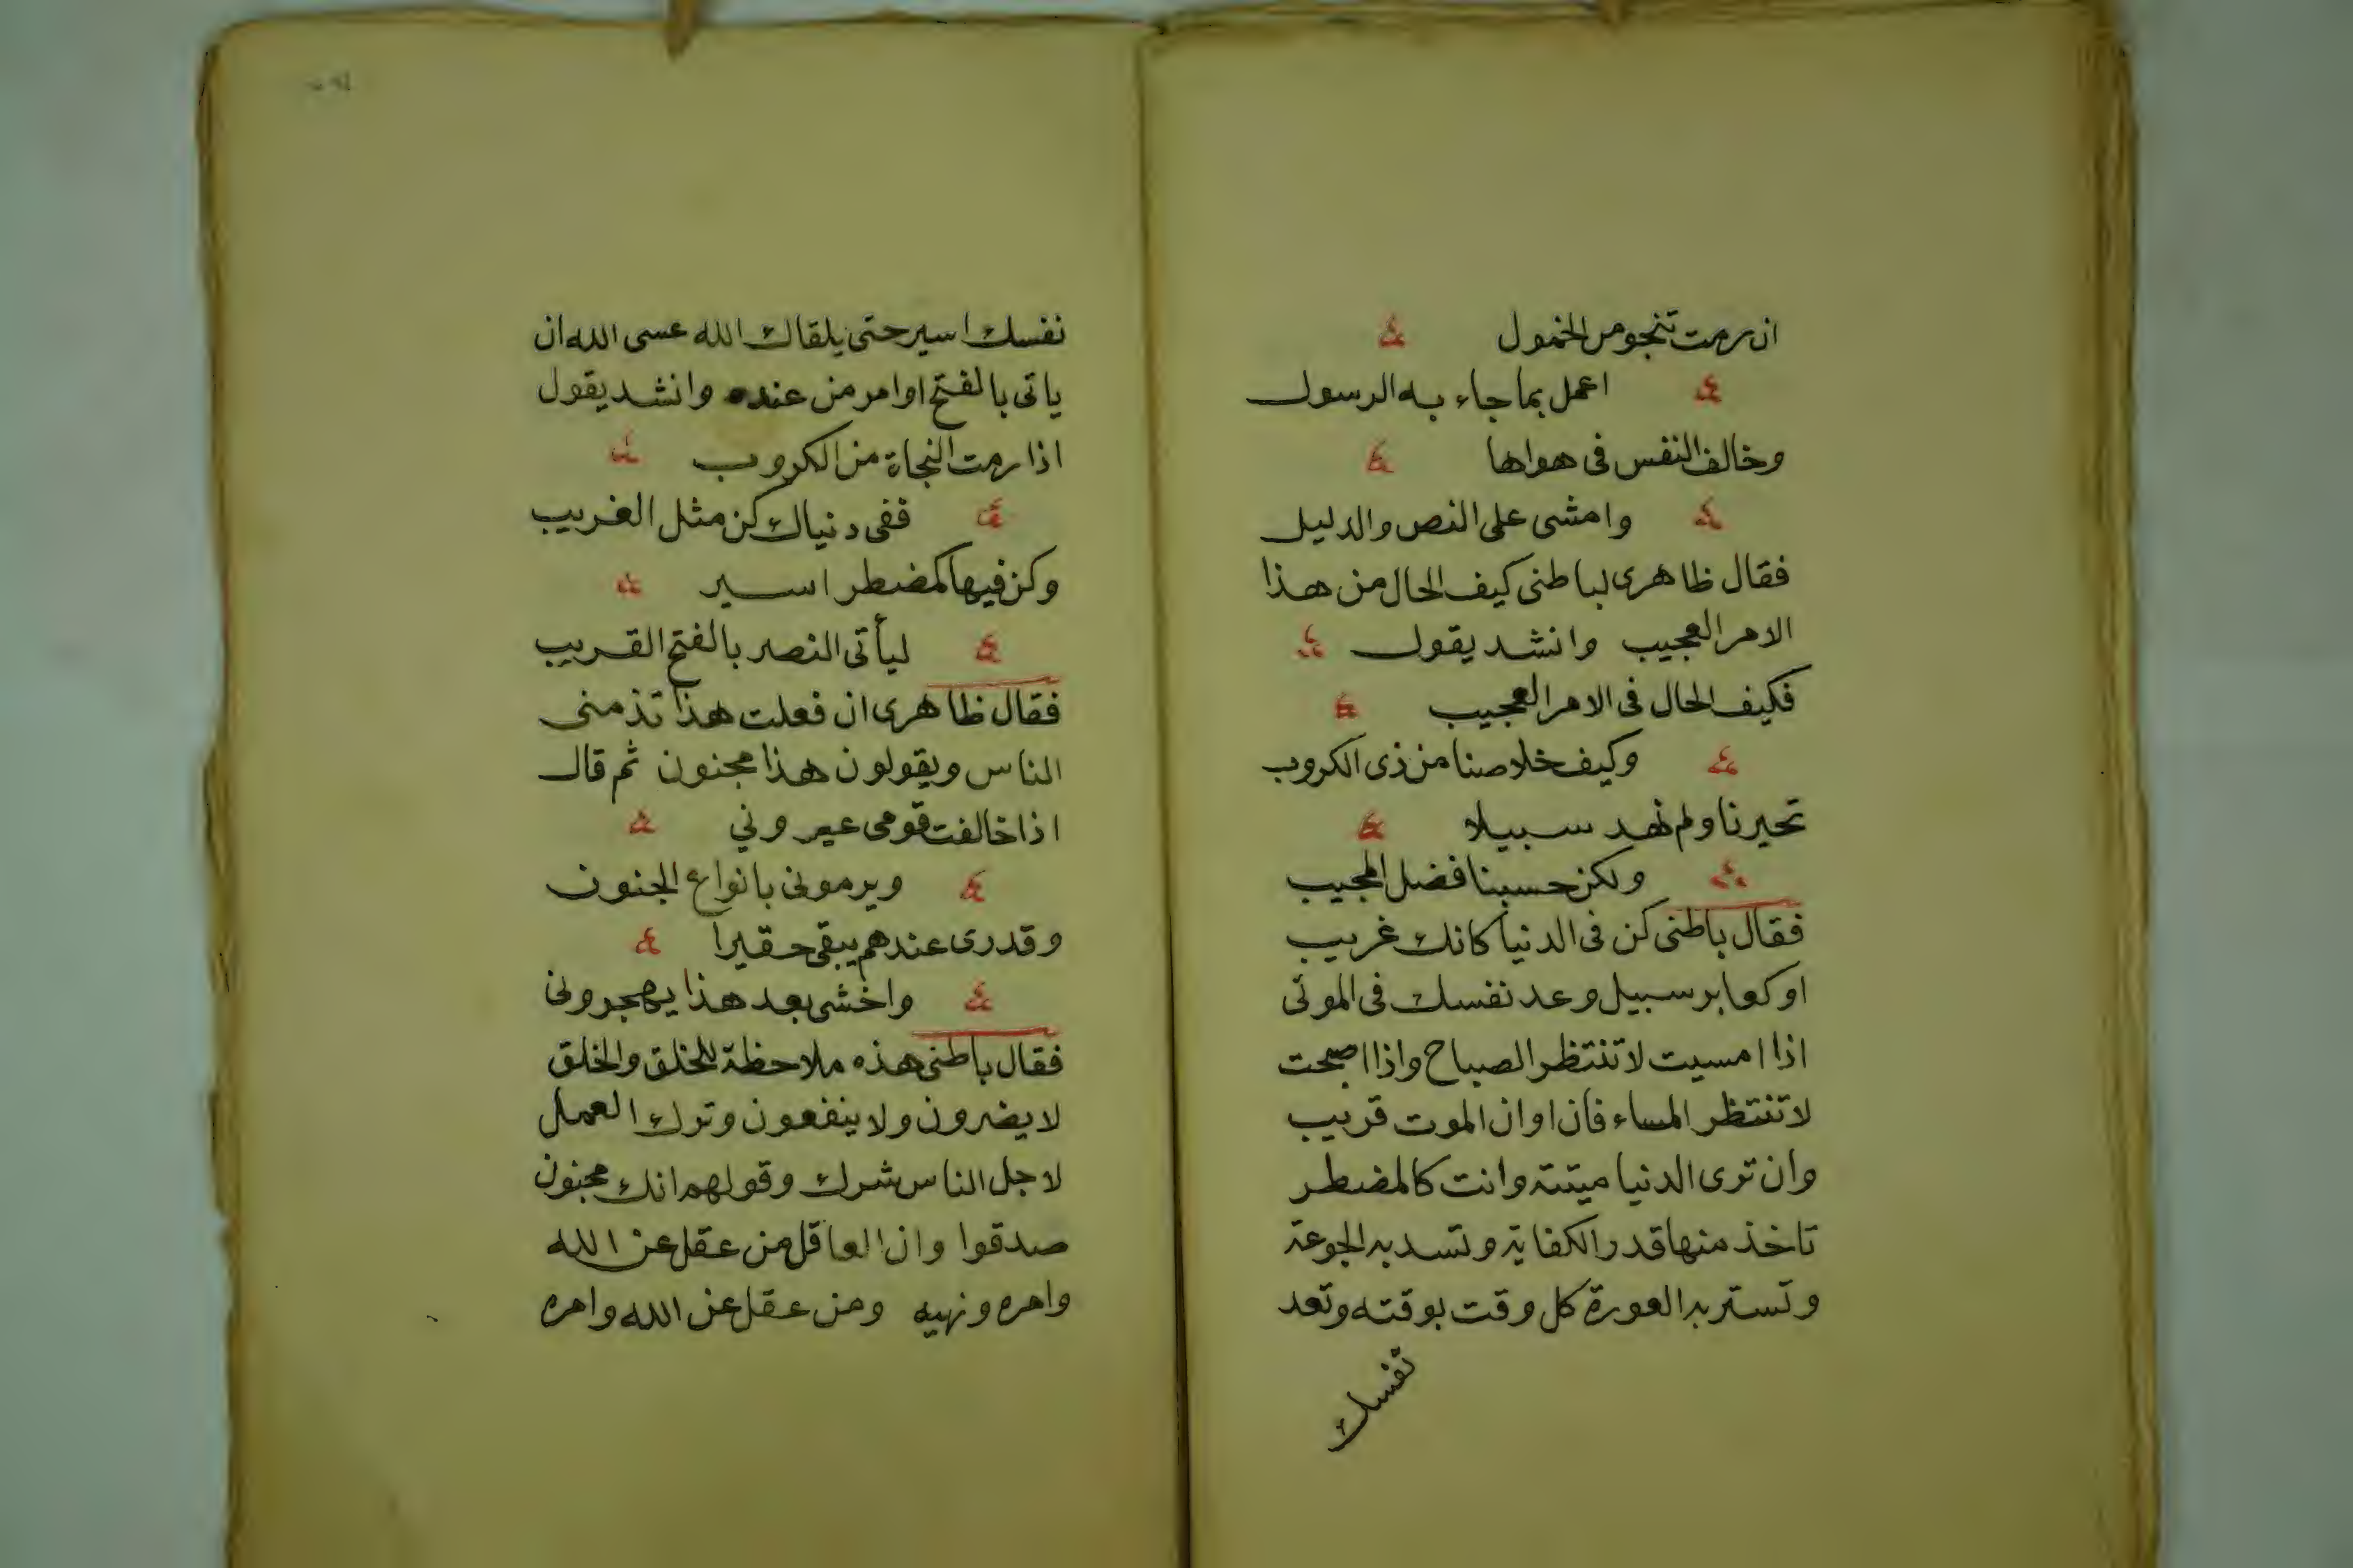 ان رمت تنجو من الخمول
اعمل بما جاء به الرسول
وخالف النفس فى هواها
وامشى على النص والدليل
فقال ظاهرى لباطنى كيف الحال من هذا
الامر العجيب وانشد يقول
فكيف الحال فى الامر العجيب
وكيف خلاصنا من ذى الكروب
تحيرنا ولم نهد سبيلا
ولكن حسبنا فضل المجيب
فقال باطنى كن فى الدنيا كانك غريب
او كعابر سبيل وعد نفسك فى الموتى
اذا امسيت لا تنتظر الصباح واذا اصبحت
لا تنتظر المساء فان اوان الموت قريب
وان ترى الدنيا ميتة وانت كالمضطر
تاخذ منها قدر الكفاية وتسد به الجوعة
وتستر به العورة كل وقت بوقته وتعد
نفسك
نفسك اسير حتى يلقاك الله عسى الله ان
ياتى بالفتح او امر من عنده وانشد يقول
اذا رمت النجاة من الكروب
ففى دنياك كن مثل الغريب
وكن فيها كمضطر اسير
ليأتى النصر بالفتح القريب
فقال ظاهرى ان فعلت هذا تذمنى
الناس ويقولون هذا مجنون ثم قال
اذا خالفت قومى عيرونى
ويرمونى بانواع الجنون
وقدرى عندهم يبقى حقيرا
واخشى بعد هذا يهجرونى
فقال باطنى هذه ملاحظة للخلق والخلق
لا يضرون ولا ينفعون وترك العمل
لاجل الناس شرك وقولهم انك مجنون
صدقوا وان العاقل من عقل عن الله
وامره ونهيه ومن عقل عن الله وامره